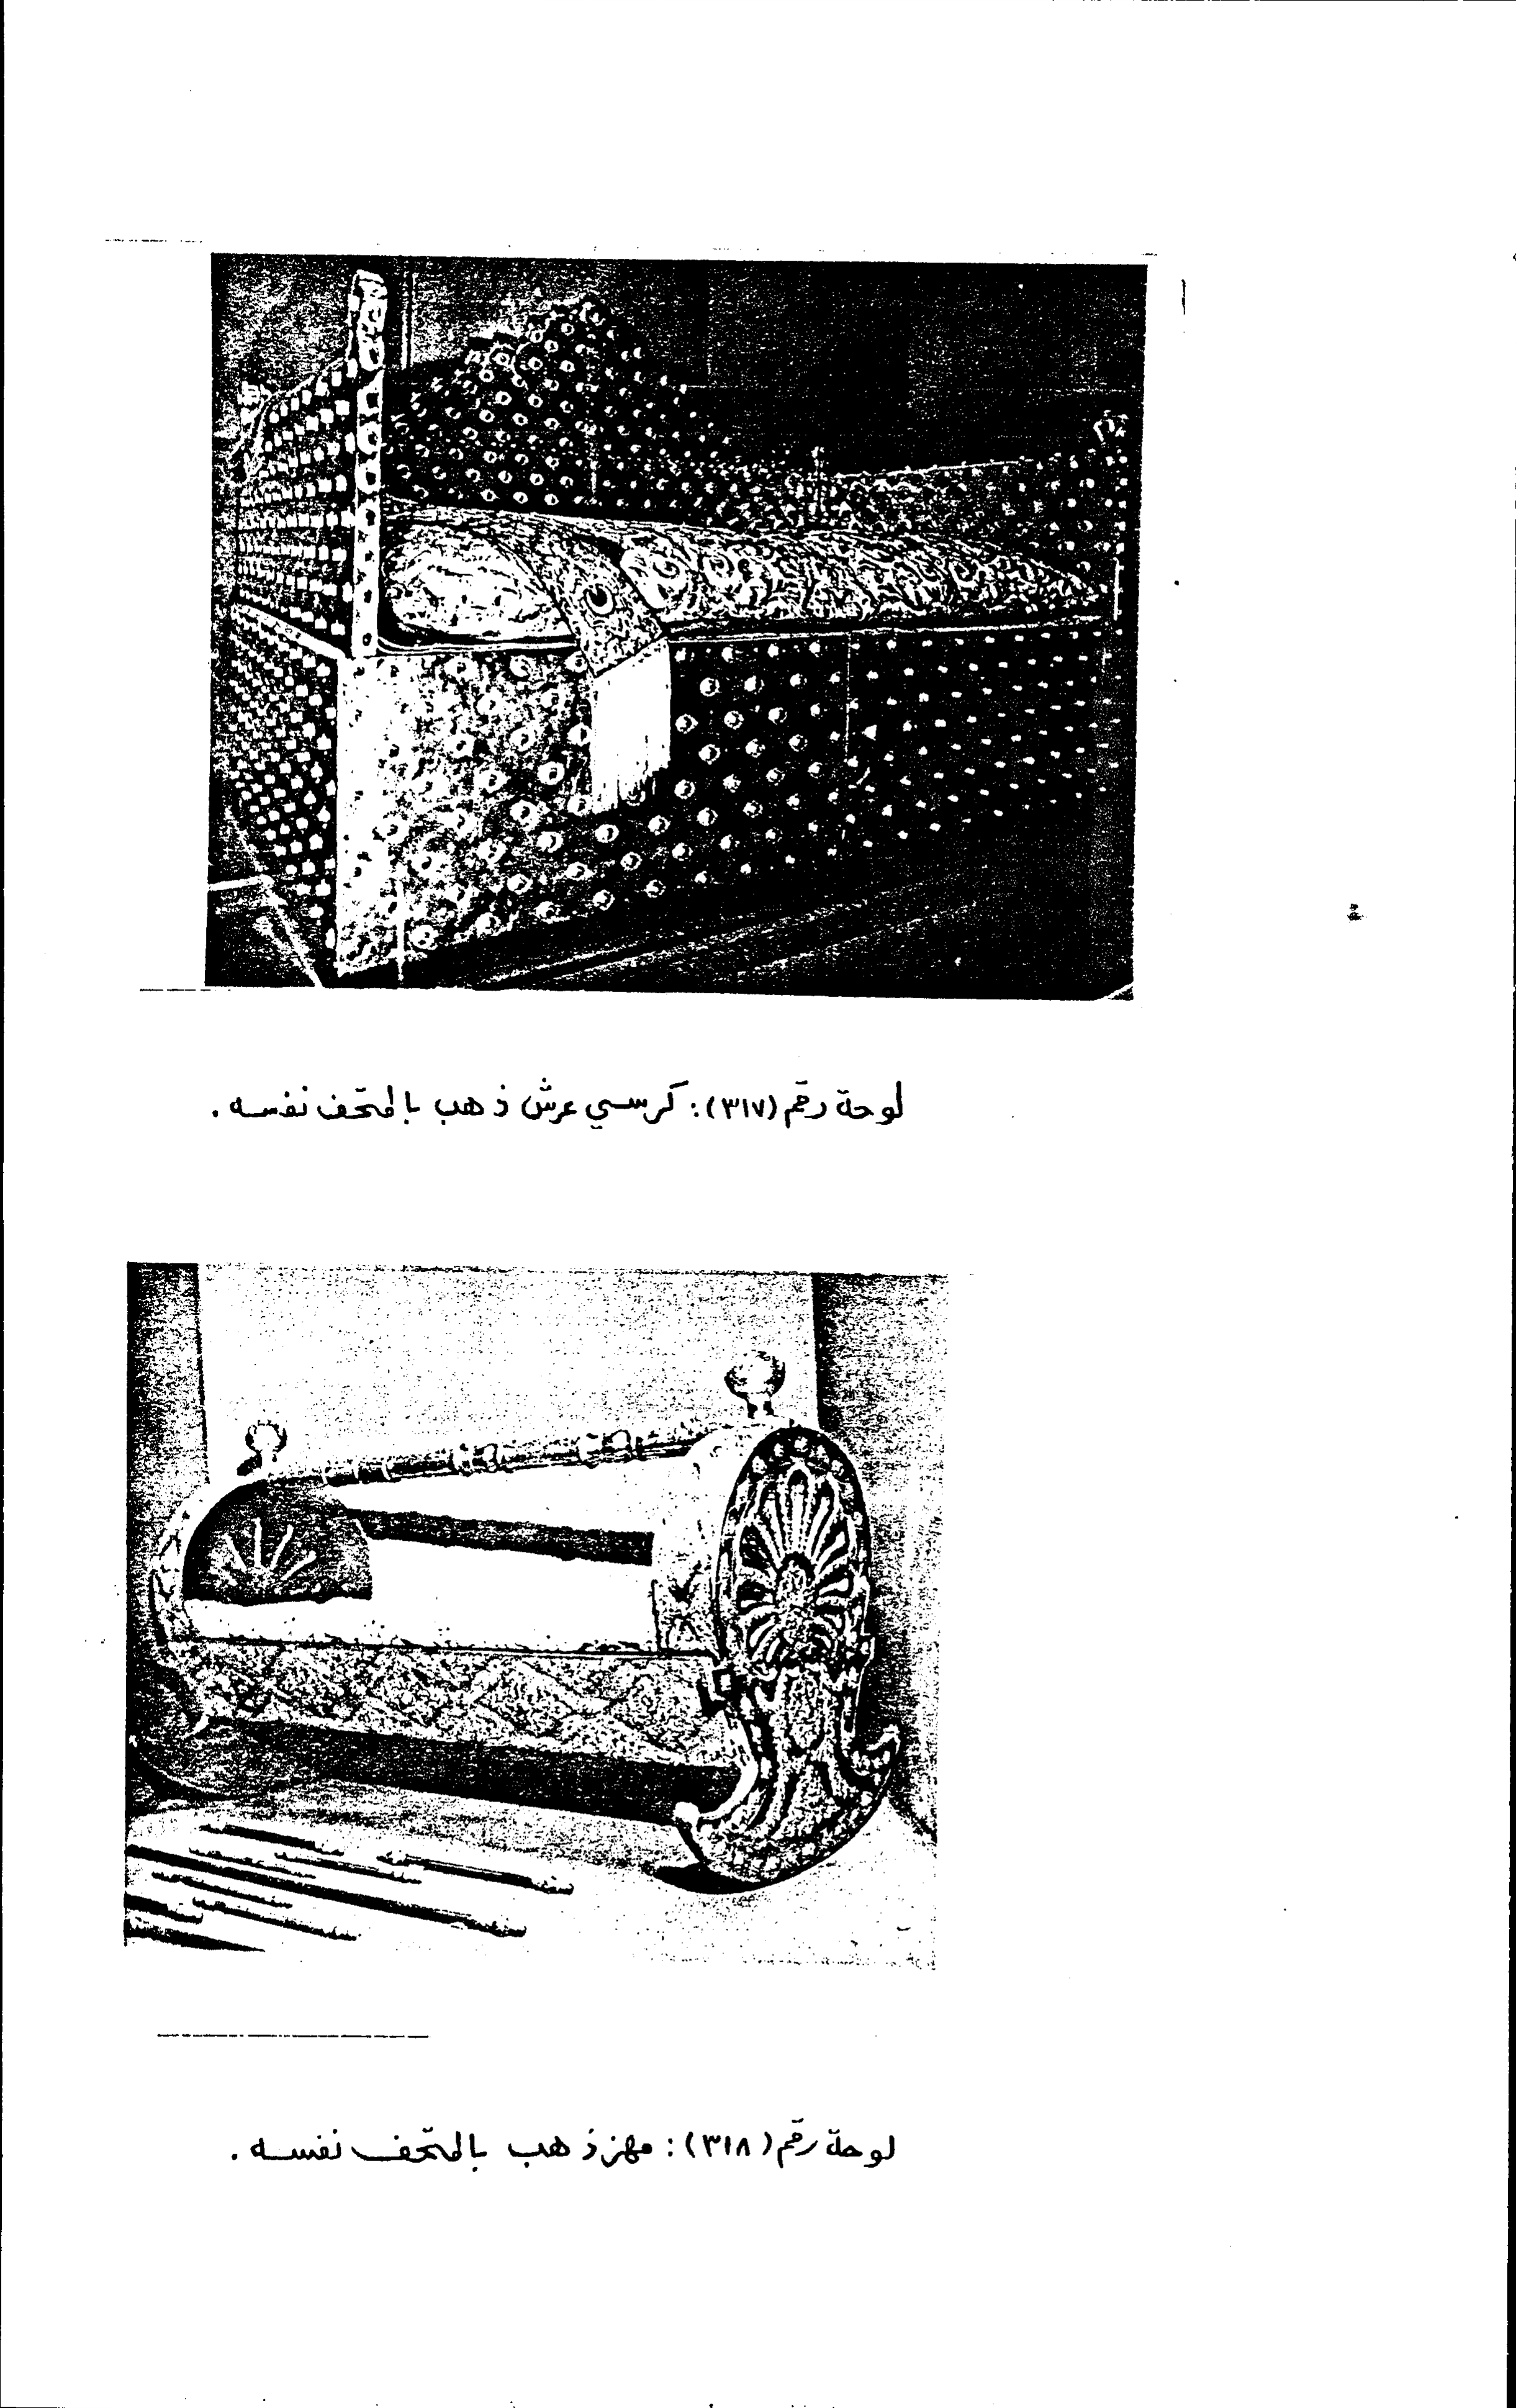 لوحة رقم (٣١٧): كرسي عرش ذهب بالمتحف نفسه.
لوحة رقم (٣١٨): مهز ذهب بالمتحف نفسه.